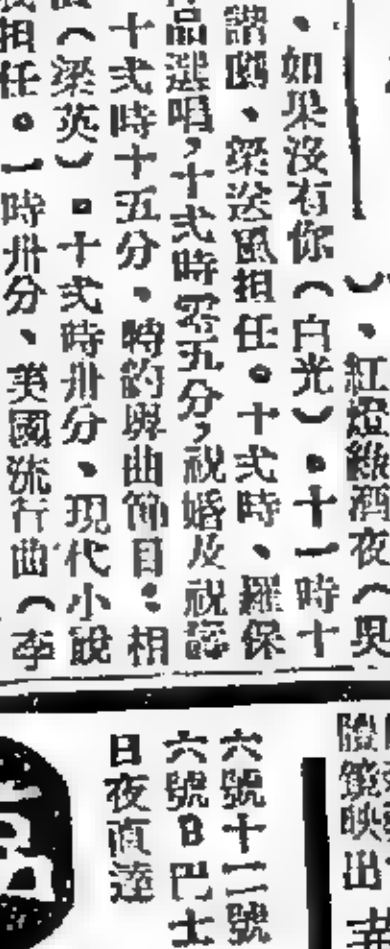 ）、紅燈綠酒夜（吳
、如果沒有你（白光）。十一時十
諧劇、梁送風担任。十弍時、羅保
品選唱，十弍時零五分，祝婚及祝
十弍時十五分、特約與曲節目：相
（梁英）。十弍時卅分、現代小說
担任。一時卅分、美國流行曲（李
映出
六號十二號
六號B巴士
日夜直達